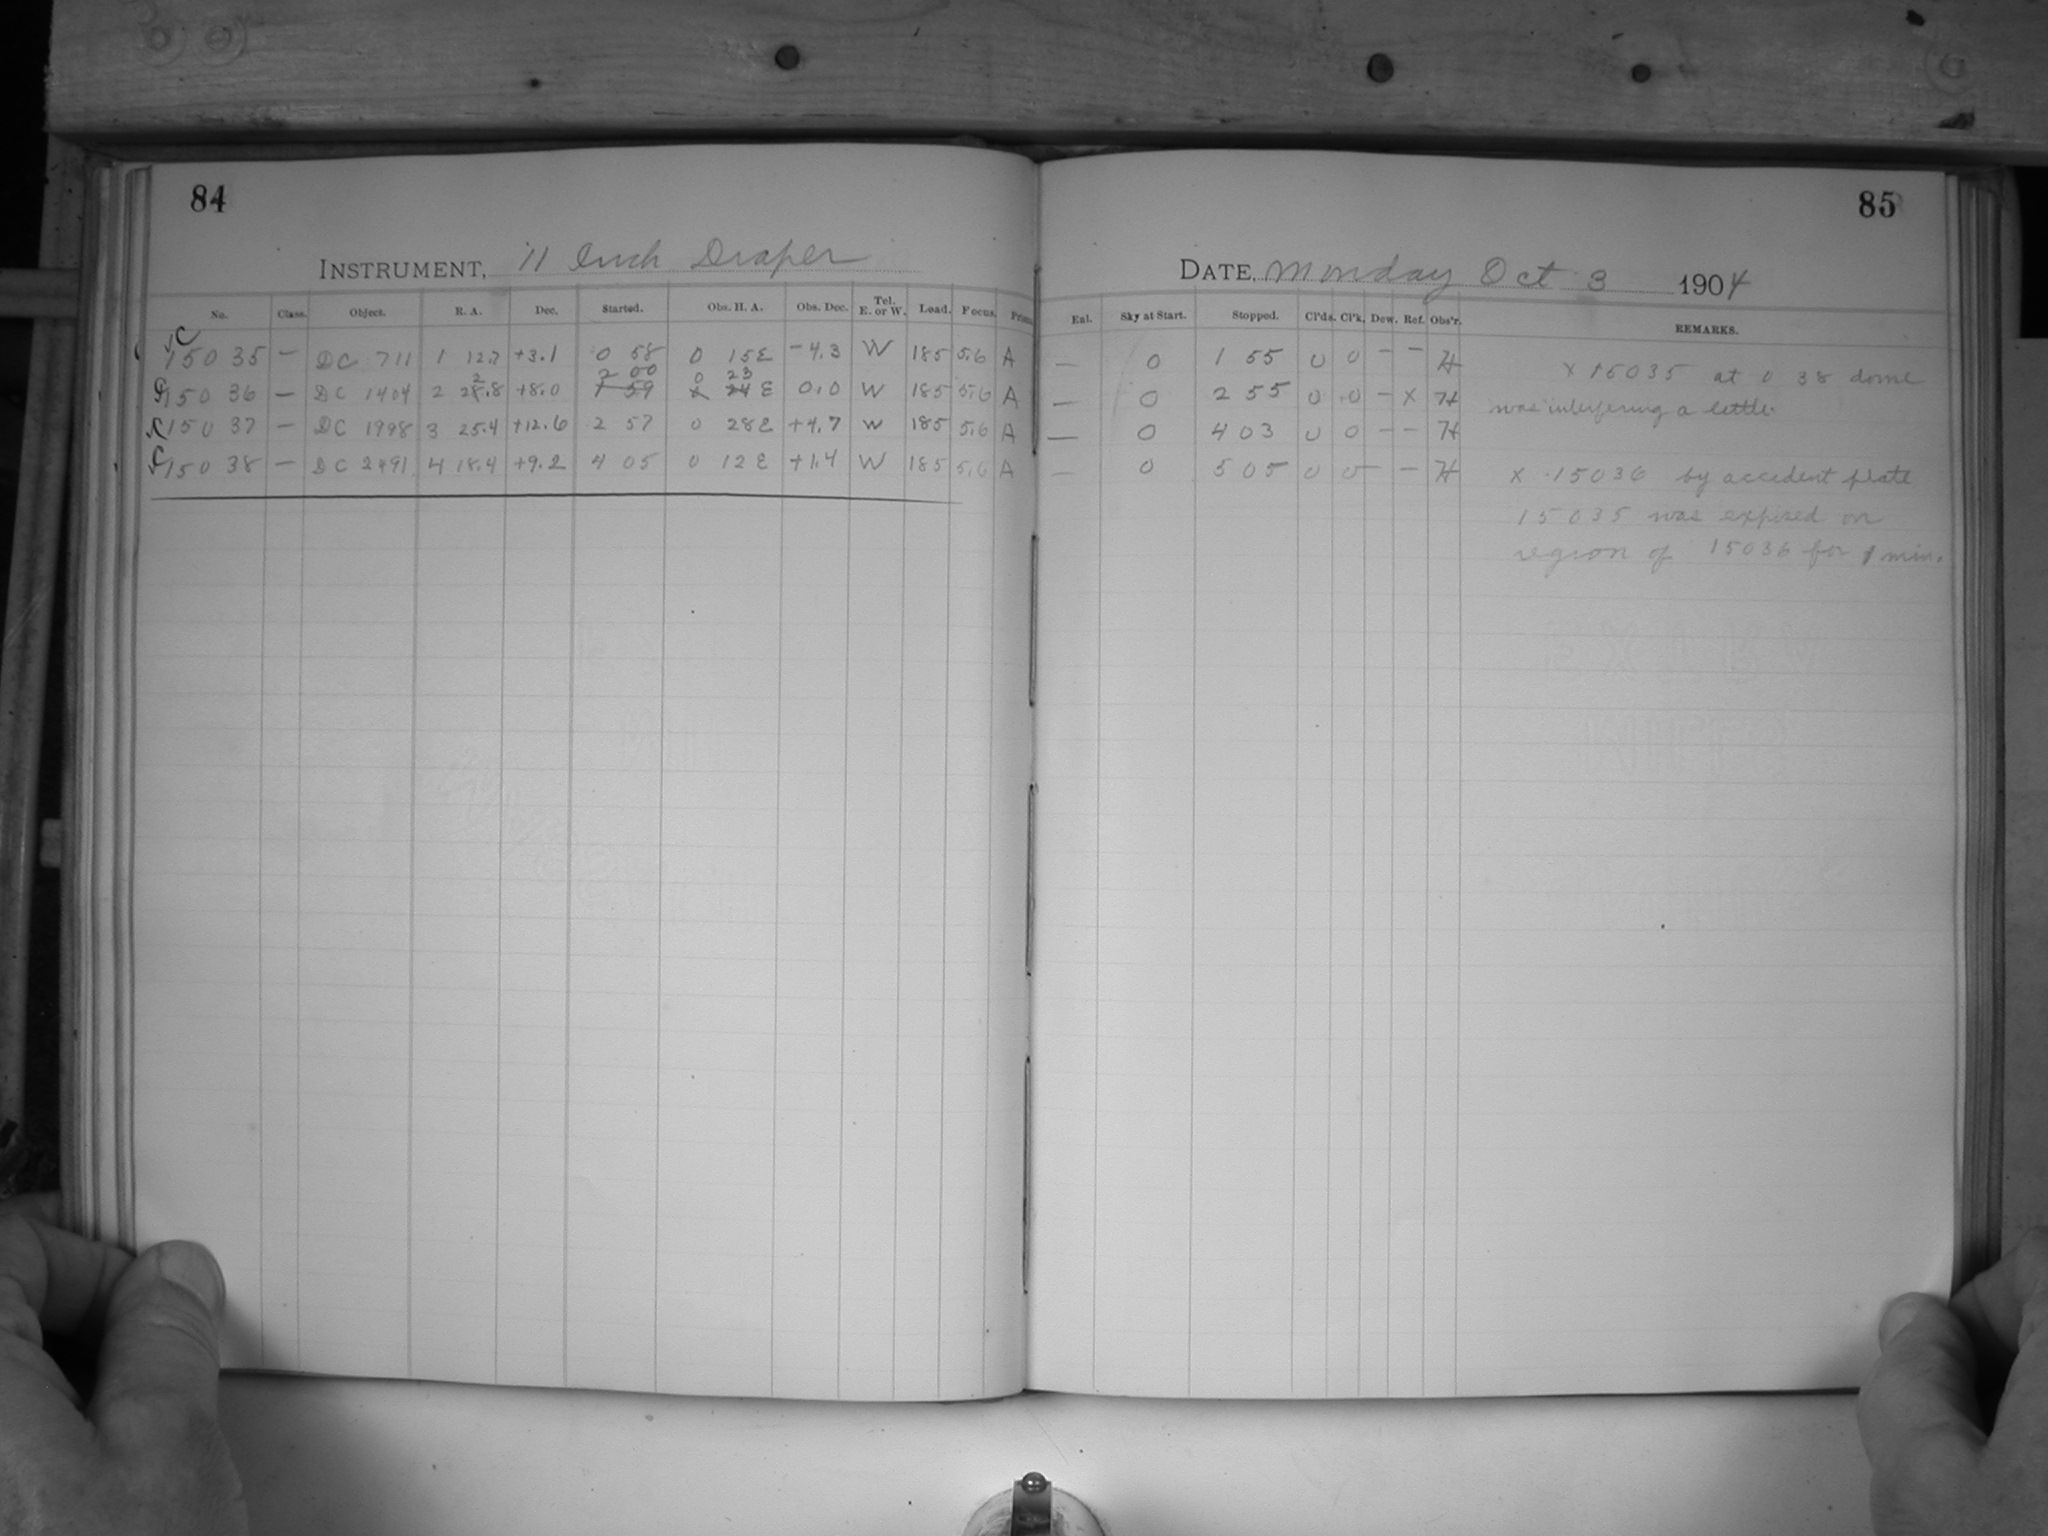 84
INSTRUMENT, 11 Inch Draper
No. Class. Object. R. A. Dec. Started. Obs. H. A. Obs. Dec. Tel. E. or W. Load. Focus. Prism
C
15035 — DC 711 1 12.7 +3.1 0 58 0 15E -4.3 W 185 5.6 A
2 2 00 0 23
C 15036 — DC 1404 2 28.8 +8.0 1 59 24 E 0.0 W 185 5.6 A
C 15037 — DC 1998 3 25.4 +12.6 2 57 0 28E +4.7 W 185 5.6 A
C 15038 — DC 2491 4 18.4 +9.2 4 05 0 12E +1.4 W 185 5.6 A
85
DATE, Monday Oct 3 1904
Enl. Sky at Start. Stopped. Cl'ds. Cl'k. Dew. Ref. Obs'r. REMARKS.
— 0 1 55 0 0 — — H
— 0 2 55 0 0 — X H
— 0 4 03 0 0 — — H
— 0 5 05 0 0 — — H
X 15035 at 0 38 dome
was interfering a little
X 15036 by accident plate
15035 was exposed on
region of 15036 for 1 min.